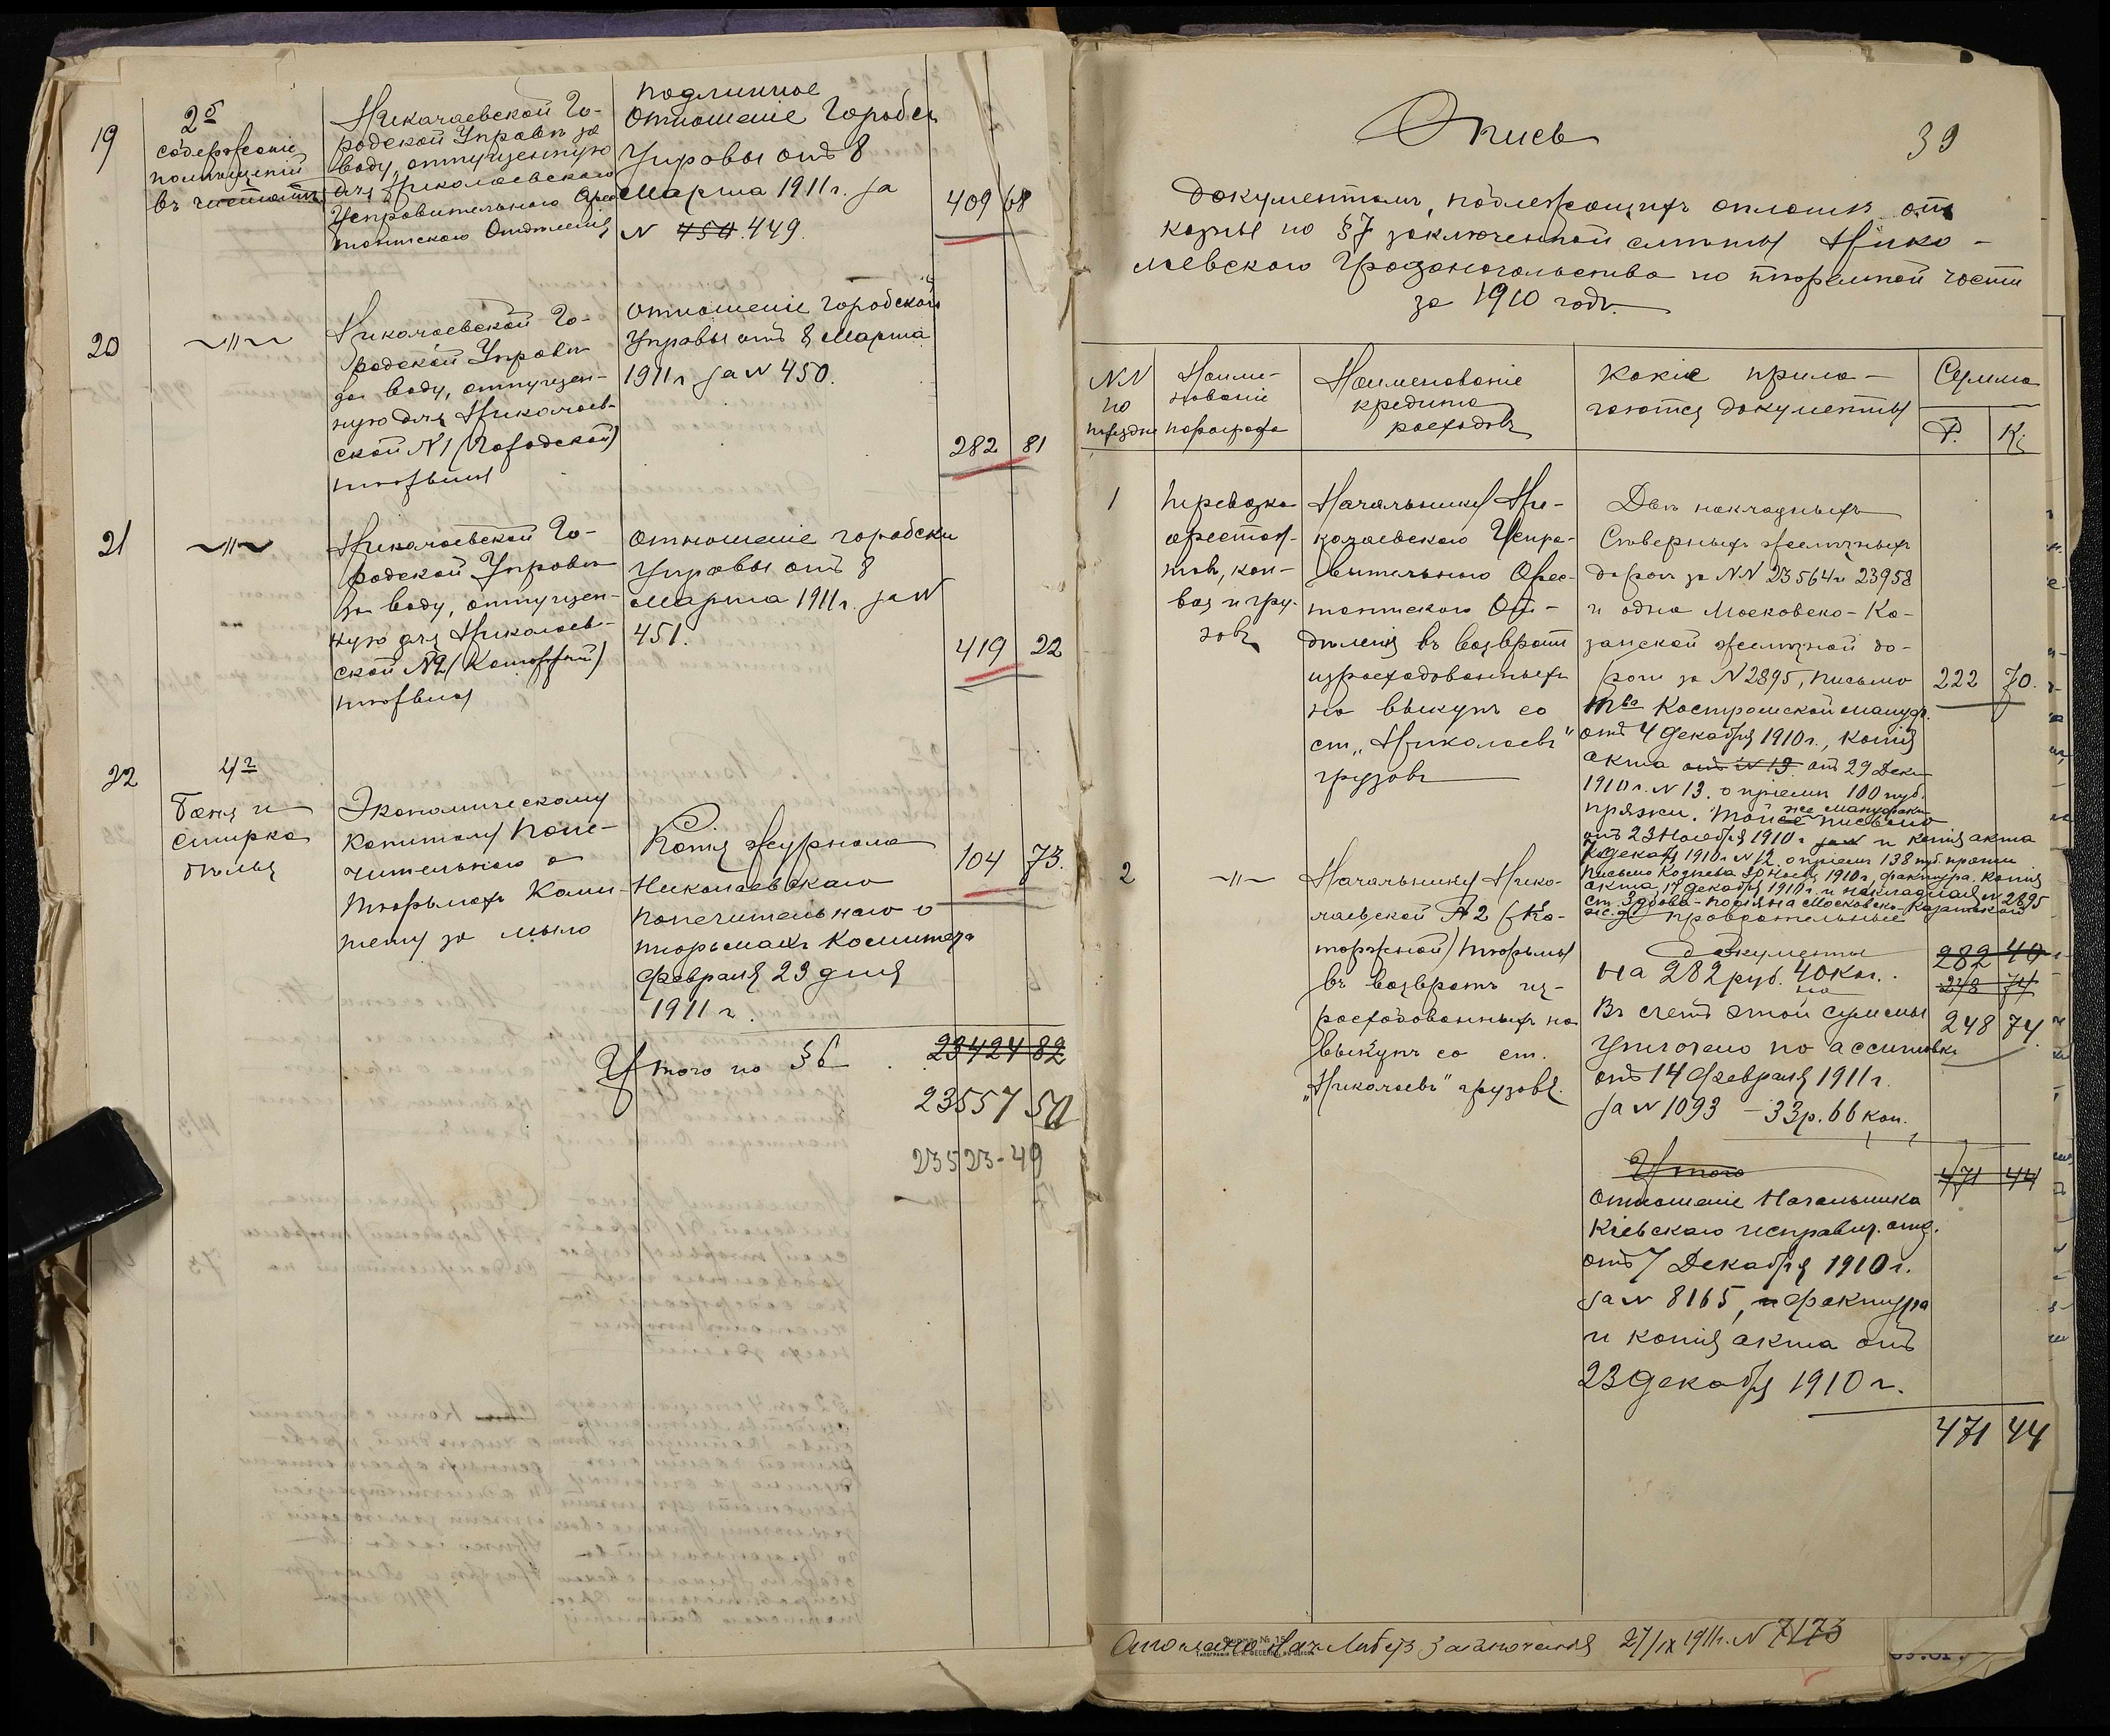 19
2б
содержаніе
помѣщеній
въ чистотѣ
Николаевской Го-
родской Управѣ за
воду, отпущенную
для Николаевскаго
Исправительнаго Арес
тантскаго Отдѣленія
подлинное
Отношеніе Городск
Управы отъ 8
Марта 1911 г. за
N 450. 449.
409 68
20
~"~
Николаевской Го-
родской Управѣ
за воду, отпущен-
ную для Николаев-
ской N1 (Городской)
тюрьмы
Отношеніе Городской
Управы отъ 8 Марта
1911 г за N 450.
282 81
21
~"~
Николаевской Го-
родской Управѣ
за воду, отпущен-
ную для Николаев-
ской N2 (Каторжной)
тюрьмы
Отношеніе городски
Управы отъ 8
Марта 1911 г. за N
451.
419 22
22
4г
Баня и
стирка
бѣлья
Экономическому
капиталу Попе-
чительнаго о
тюрьмахъ Коми-
тету за мыло
Копія журнала
Николаевскаго
попечительнаго о
тюрьмахъ Комитета
февраля 23 дня
1911 г.
104 73.
Итого по §6 .
23424 82
23557 50
23523-49
39
Опись
документамъ, подлежащихъ оплатѣ отъ
казны по §7 заключенной смѣты Нико-
лаевскаго Градоначальства по тюремной части
за 1910 годъ.
NN
по
порядку
Наиме-
нованіе
параграфа
Наименованіе
кредита
расходовъ
Какіе прила-
гаются документы
Сумма
Р. К.
1
Перевозка
арестан-
товъ, кон-
воя и гру-
зовъ
Начальнику Ни-
колаевскаго Испра-
вительнаго Арес-
тантскаго От-
дѣленія въ возвратъ
израсходованныхъ
на выкупъ со
ст. "Николаевъ"
грузовъ
Двѣ накладныхъ
Сѣверныхъ желѣзныхъ
дорогъ за NN 23564 и 23958
и одна Московско-Ка-
занской желѣзной до-
роги за N 2895, письмо
Тва Костромской мануф.
отъ 4 декабря 1910 г., копія
акта отъ N 13 отъ 29 Дек.
1910 г. N 13. о пріемѣ 100 пуд.
пряжи. Той же мануфак. письмо
отъ 23 Ноября 1910 г за N и копія акта
декаб 1910 г N 12 о пріемѣ 138 пуд. пряжи
акта 17 декабря 1910 г. и накладная N 2895
222 70.
2
~"~
Начальнику Нико-
лаевской N 2 (Ка-
торжной) тюрьмы
въ возвратъ из-
расходованныхъ на
выкупъ со ст.
"Николаевъ" грузовъ.
документы
на 282 руб. 40 коп..
Въ счетъ этой суммы
уплочено по ассигновкѣ
отъ 14 февраля 1911 г.
за N 1093 - 33 р. 66 коп.
282 40
248 74
248 74.
Итого
471 44
Отношеніе Начальника
Кіевскаго исправит. отд.
отъ 7 Декабря 1910 г.
за N 8165, и фактура
и копія акта отъ
23 декабря 1910 г.
471 44
27/IX 1911 г. N 7173